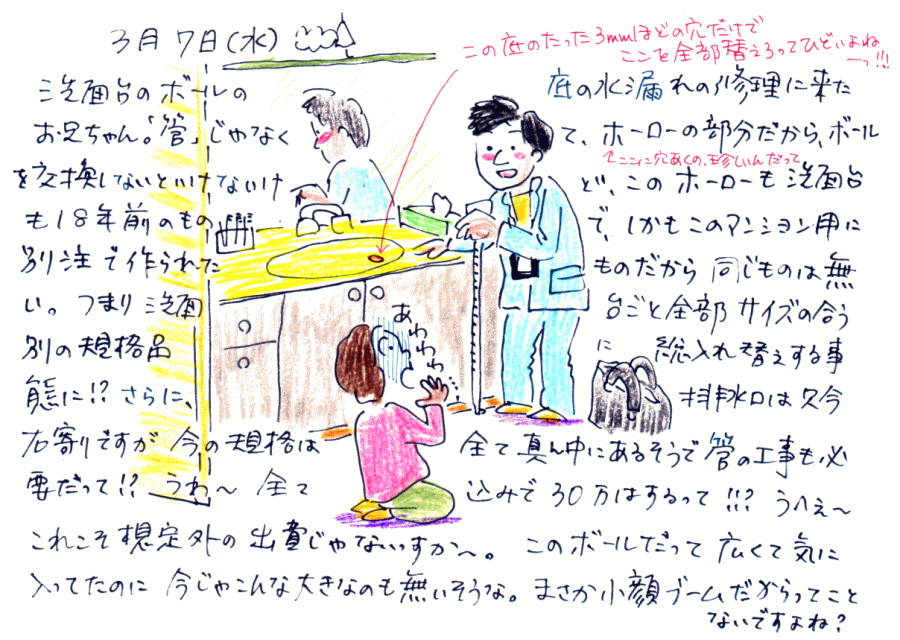 3月7日(水)
この底のたった3mmほどの穴だけで
ここを全部替えろってひどいよね
ーっ!!!
洗面台のボールの 底の水漏れの修理に来た
お兄ちゃん。「管」じゃなく て、ホーローの部分だから、ボール
↑ここに穴あくの、珍しいんだって
を交換しないといけないけ ど、このホーローも洗面台
も18年前のもの で、しかもこのマンション用に
別注で作られた ものだから同じものは無
い。つまり洗面 台ごと全部サイズの合う
別の規格品 に 総入れ替えする事
態に!?さらに、 排水口は只今
右寄りですが今の規格は 全て真ん中にあるそうで管の工事も必
要だって!?うわ〜 全て 込みで30万はするって!!?うへえ〜
あわわわ…
これこそ想定外の出費じゃないっすか〜。このボールだって広くて気に
入ってたのに今じゃこんな大きなのも無いそうな。まさか小顔ブームだからってこと
ないですよね?